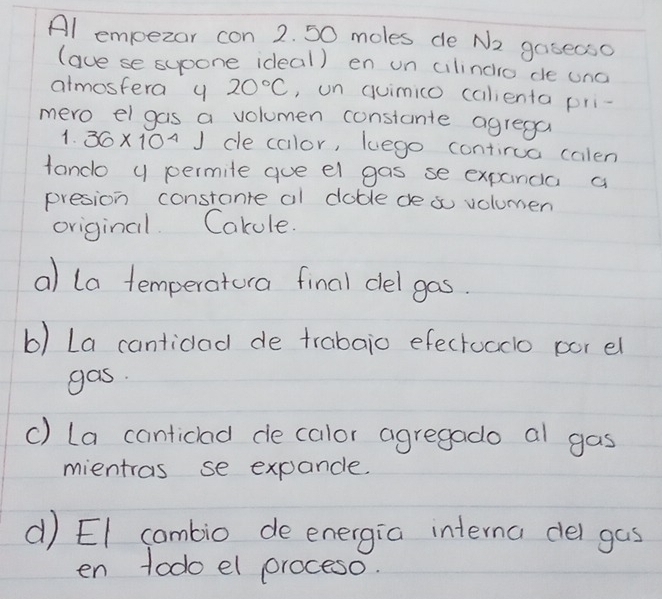 Al empezar con 2.50 moles de N2 gaseoso
(que se supone ideal) en un cilindro de una
atmosfera y 20°C, un quimico calienta pri-
mero el gas a volumen constante agrega
1.36x10^4 J de calor, luego continua calen
tando y permite que el gas se expanda a
presion constante al doble de su volumen
original. Calcule.
a) La temperatura final del gas.
b) La cantidad de trabajo efectuado por el
gas.
c) La cantidad de calor agregado al gas
mientras se expande.
d) El cambio de energía interna del gas
en todo el proceso.